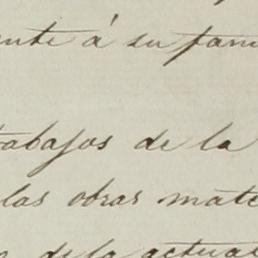 ente á su fam
trabajos de la
las obras mate
de la actual